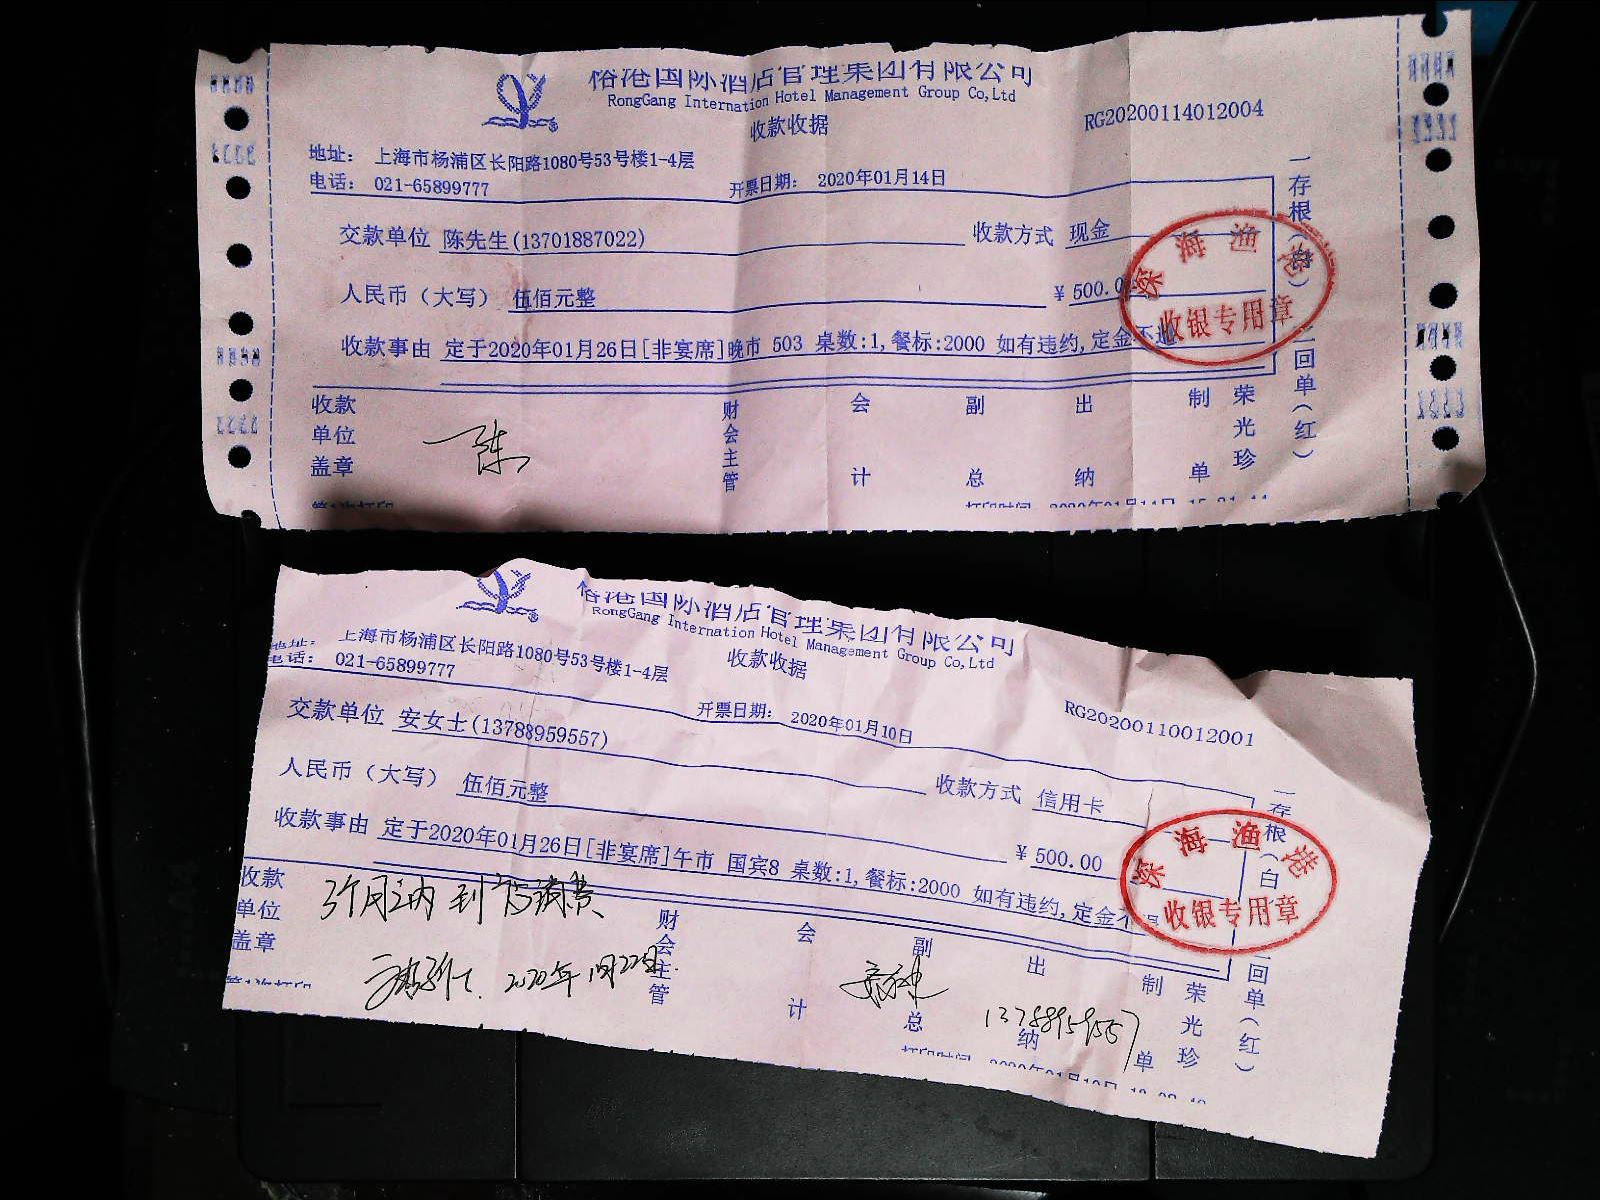 榕港国际酒店管理集团有限公司
RongGang Internation Hotel Management Group Co,Ltd
收款收据
RG20200114012004
地址： 上海市杨浦区长阳路1080号53号楼1-4层
电话： 021-65899777
开票日期： 2020年01月14日
交款单位 陈先生(13701887022)
收款方式 现金
人民币（大写） 伍佰元整
¥ 500.0
收款事由 定于2020年01月26日[非宴席]晚市 503 桌数:1,餐标:2000 如有违约,定金不退
一存根（白）
二回单（红）
深海渔港
收银专用章
收款单位盖章
陈
财会主管
会计
副总
出纳
制单
荣光珍
第1次打印
打印时间 2020年01月14日
榕港国际酒店管理集团有限公司
RongGang Internation Hotel Management Group Co,Ltd
收款收据
RG20200110012001
地址： 上海市杨浦区长阳路1080号53号楼1-4层
电话： 021-65899777
开票日期： 2020年01月10日
交款单位 安女士(13788959557)
收款方式 信用卡
人民币（大写） 伍佰元整
¥ 500.00
收款事由 定于2020年01月26日[非宴席]午市 国宾8 桌数:1,餐标:2000 如有违约,定金不退
一存根（白）
二回单（红）
深海渔港
收银专用章
收款单位盖章
3个月之内到店消费
2020年1月22日.
13788959557
财会主管
会计
副总
出纳
制单
荣光珍
第1次打印
打印时间 2020年01月10日